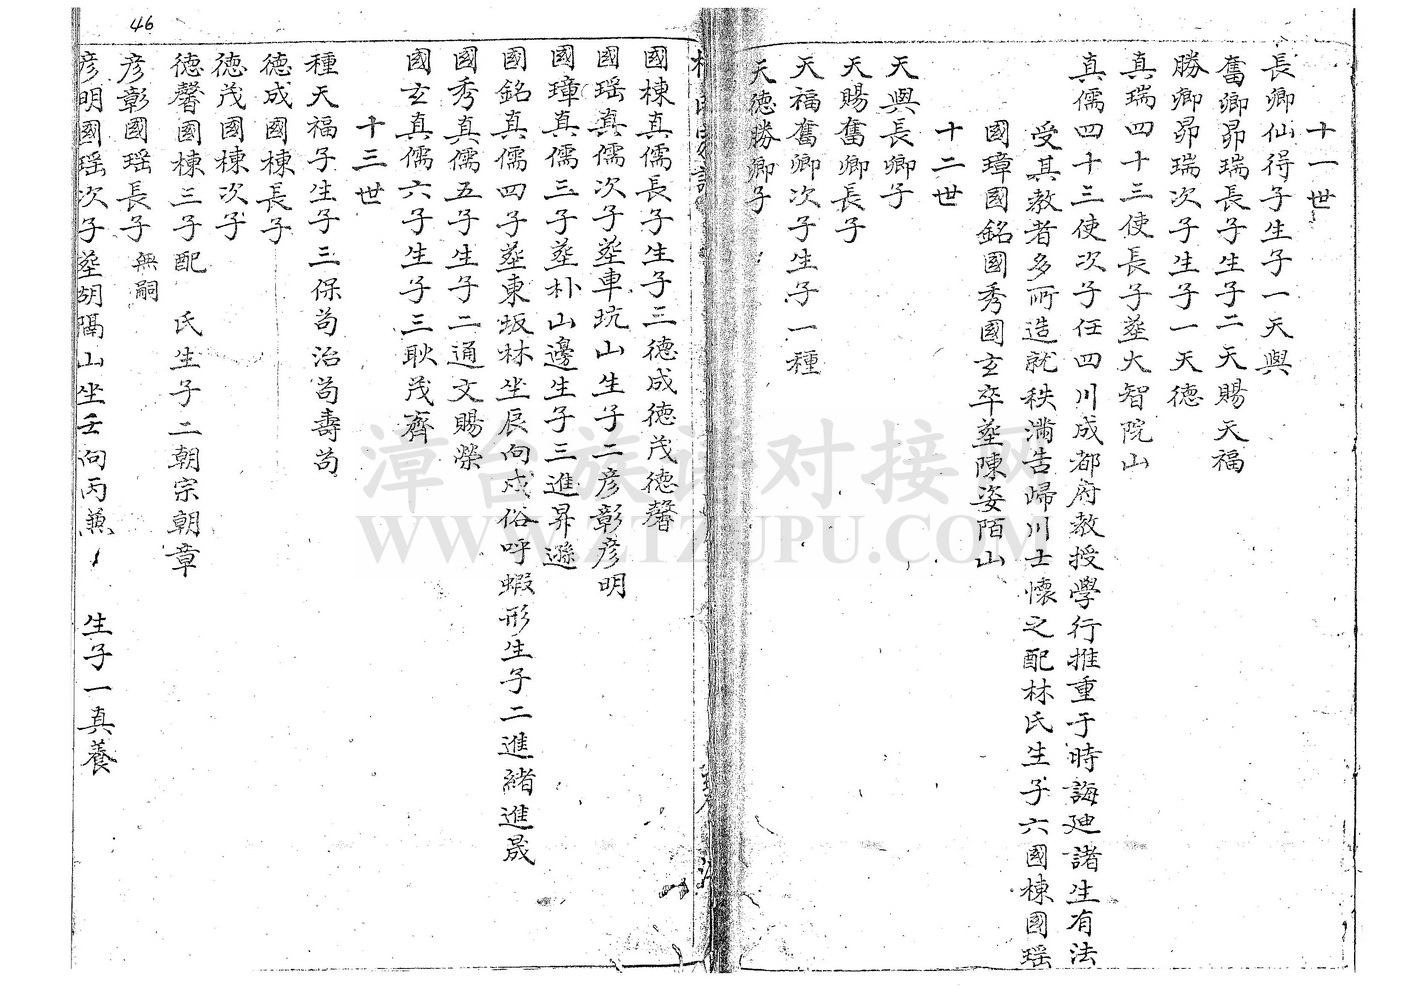 十一世
長卿仙得子生子一天與
奮卿昴瑞長子生子二天賜天福
勝卿昴瑞次子生子一天德
真瑞四十三使長子塟大智院山
真儒四十三使次子任四川成都府教授學行推重于時誨廸諸生有法
受其教者多所造就秩滿告歸川士懷之配林氏生子六國棟國瑶
國璋國銘國秀國玄卒塟陳姿陌山
十二世
天與長卿子
天賜奮卿長子
天福奮卿次子生子一種
天德勝卿子
國棟真儒長子生子三德成德茂德馨
國瑶真儒次子塟車坑山生子二彦彰彦明
國璋真儒三子塟朴山邊生子三進昇遜
國銘真儒四子塟東坂林坐辰向戌俗呼蝦形生子二進緒進晟
國秀真儒五子生子二通文賜榮
國玄真儒六子生子三耿茂齊
十三世
種天福子生子三保苟治苟壽苟
德成國棟長子
德茂國棟次子
德馨國棟三子配 氏生子二朝宗朝章
彦彰國瑶長子 無嗣
彦明國瑶次子塟胡隔山坐壬向丙兼 生子一真養
46
漳台族谱对接网
WWW.ZTZUPU.COM